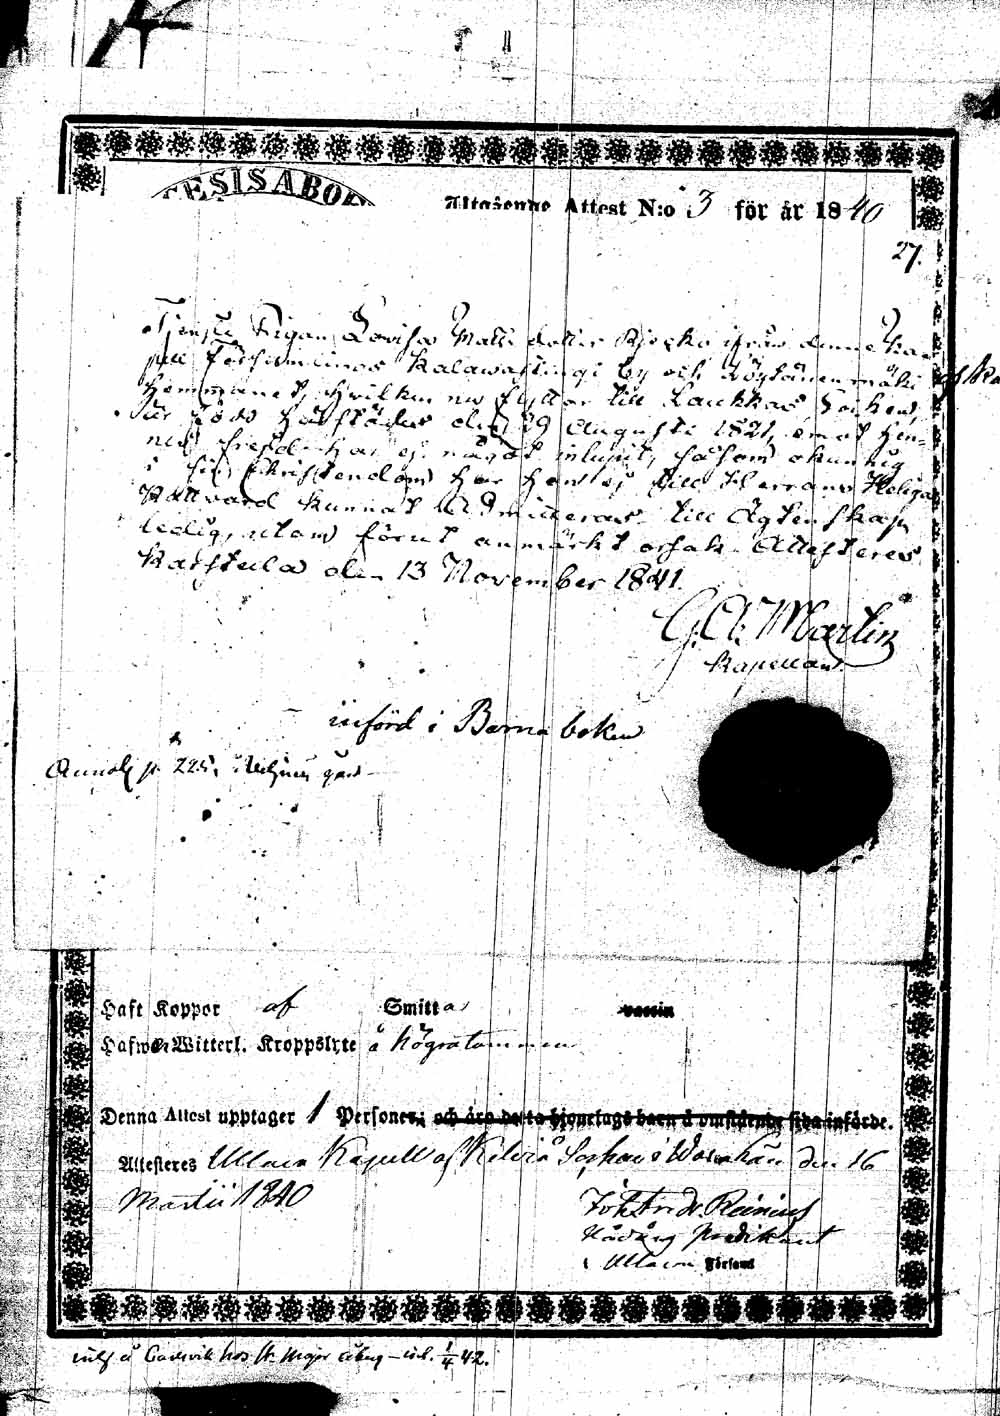 ESIS ABO
Altagende Attest N:o 3 för år 1840
27.
Tjenste Pigan Lovisa Matts dotter Kjecko ifrån denne Ka-
pell Församlings Kalawastingi by och Löytänenmäki
Hemmanet, hvilken nu flyttar till Laukkas Sochen,
är född härstädes den 29 Augusti 1821, emot hen-
nes frejd har ej något inlupit, såsom okunnig
i sin Christendom har hon ej till Herrans Heliga
Nattvard kunnat admitteras. till Ägtenskap
ledig, utom förut anmärkt orsak. Attesteras
Karstula den 13 November 1841.
G. A. Martin
Kapellan.
införd i Barna boken
p. 225,
Haft Koppor af Smitta vaccin
Hafwer Witterl. Kroppslyte å högra tummen
Denna Attest upptager 1 Personer; och äro detta hjonelags barn å omstående sida införde.
Attesteres Ullava Kapell af Kelviå Sochen i Wasa Län den 16
Martii 1840
Joh Fredr. Reinius
Nådårs Predikant
i Ullava Församl
å Carlsvik hos H. Major 1/4 42.